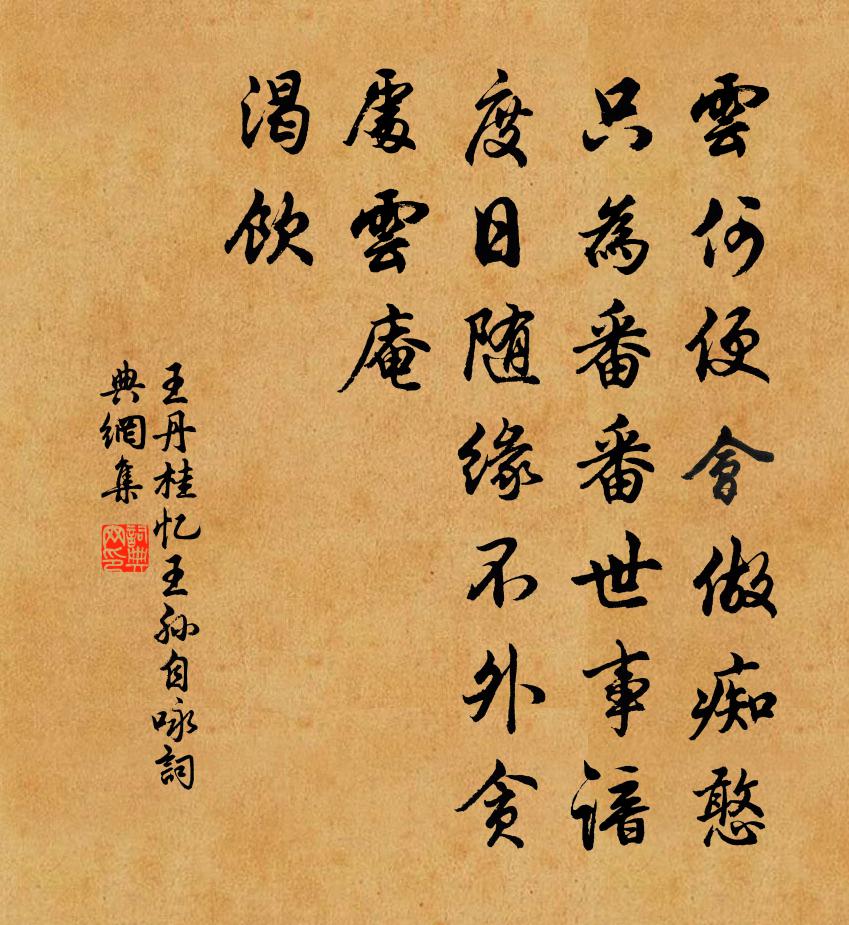 雲何便會做痴憨
只為番番世事諳
度日随緣不外貪
處雲庵
渴飲
王丹桂忆王孙自咏詞
典網集
詞典
网印